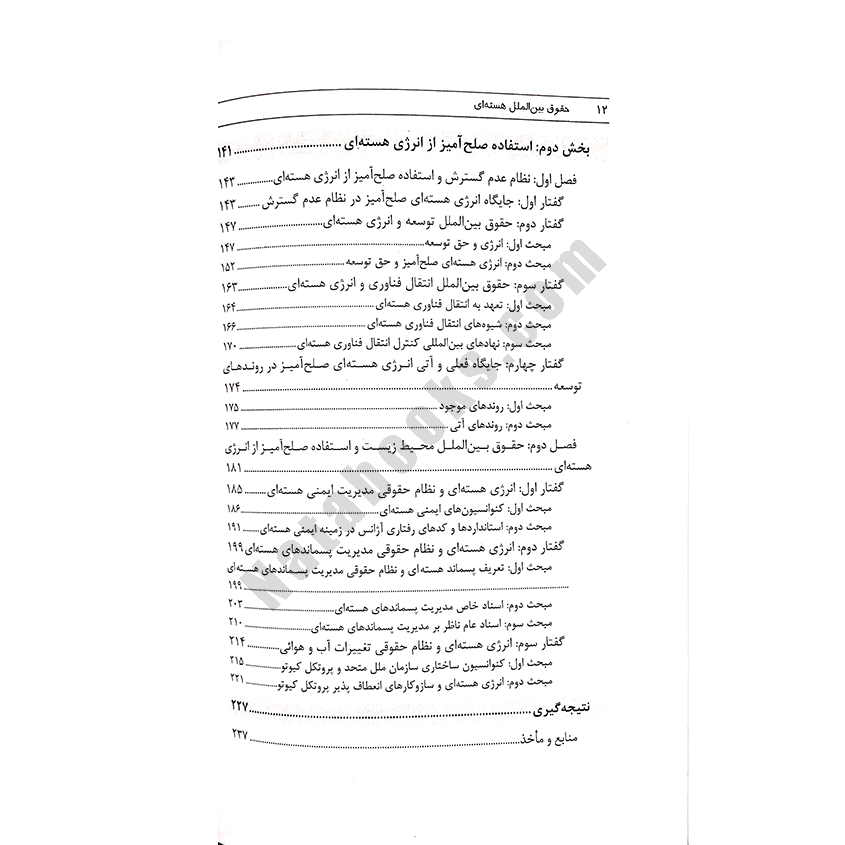 ۱۲ حقوق بین‌الملل هسته‌ای
بخش دوم: استفاده صلح‌آمیز از انرژی هسته‌ای ۱۴۱
فصل اول: نظام عدم گسترش و استفاده صلح‌آمیز از انرژی هسته‌ای ۱۴۳
گفتار اول: جایگاه انرژی هسته‌ای صلح‌آمیز در نظام عدم گسترش ۱۴۳
گفتار دوم: حقوق بین‌الملل توسعه و انرژی هسته‌ای ۱۴۷
مبحث اول: انرژی و حق توسعه ۱۴۷
مبحث دوم: انرژی هسته‌ای صلح‌آمیز و حق توسعه ۱۵۲
گفتار سوم: حقوق بین‌الملل انتقال فناوری و انرژی هسته‌ای ۱۶۳
مبحث اول: تعهد به انتقال فناوری هسته‌ای ۱۶۴
مبحث دوم: شیوه‌های انتقال فناوری هسته‌ای ۱۶۶
مبحث سوم: نهادهای بین‌المللی کنترل انتقال فناوری هسته‌ای ۱۷۰
گفتار چهارم: جایگاه فعلی و آتی انرژی هسته‌ای صلح‌آمیز در روندهای
توسعه ۱۷۴
مبحث اول: روندهای موجود ۱۷۵
مبحث دوم: روندهای آتی ۱۷۷
فصل دوم: حقوق بین‌الملل محیط زیست و استفاده صلح‌آمیز از انرژی
هسته‌ای ۱۸۱
گفتار اول: انرژی هسته‌ای و نظام حقوقی مدیریت ایمنی هسته‌ای ۱۸۵
مبحث اول: کنوانسیون‌های ایمنی هسته‌ای ۱۸۶
مبحث دوم: استانداردها و کدهای رفتاری آژانس در زمینه ایمنی هسته‌ای ۱۹۱
گفتار دوم: انرژی هسته‌ای و نظام حقوقی مدیریت پسماندهای هسته‌ای ۱۹۹
مبحث اول: تعریف پسماند هسته‌ای و نظام حقوقی مدیریت پسماندهای هسته‌ای
۱۹۹
مبحث دوم: اسناد خاص مدیریت پسماندهای هسته‌ای ۲۰۳
مبحث سوم: اسناد عام ناظر بر مدیریت پسماندهای هسته‌ای ۲۱۰
گفتار سوم: انرژی هسته‌ای و نظام حقوقی تغییرات آب و هوائی ۲۱۴
مبحث اول: کنوانسیون ساختاری سازمان ملل متحد و پروتکل کیوتو ۲۱۵
مبحث دوم: انرژی هسته‌ای و سازوکارهای انعطاف پذیر پروتکل کیوتو ۲۲۱
نتیجه‌گیری ۲۲۷
منابع و مأخذ ۲۳۷
Narabooks.com